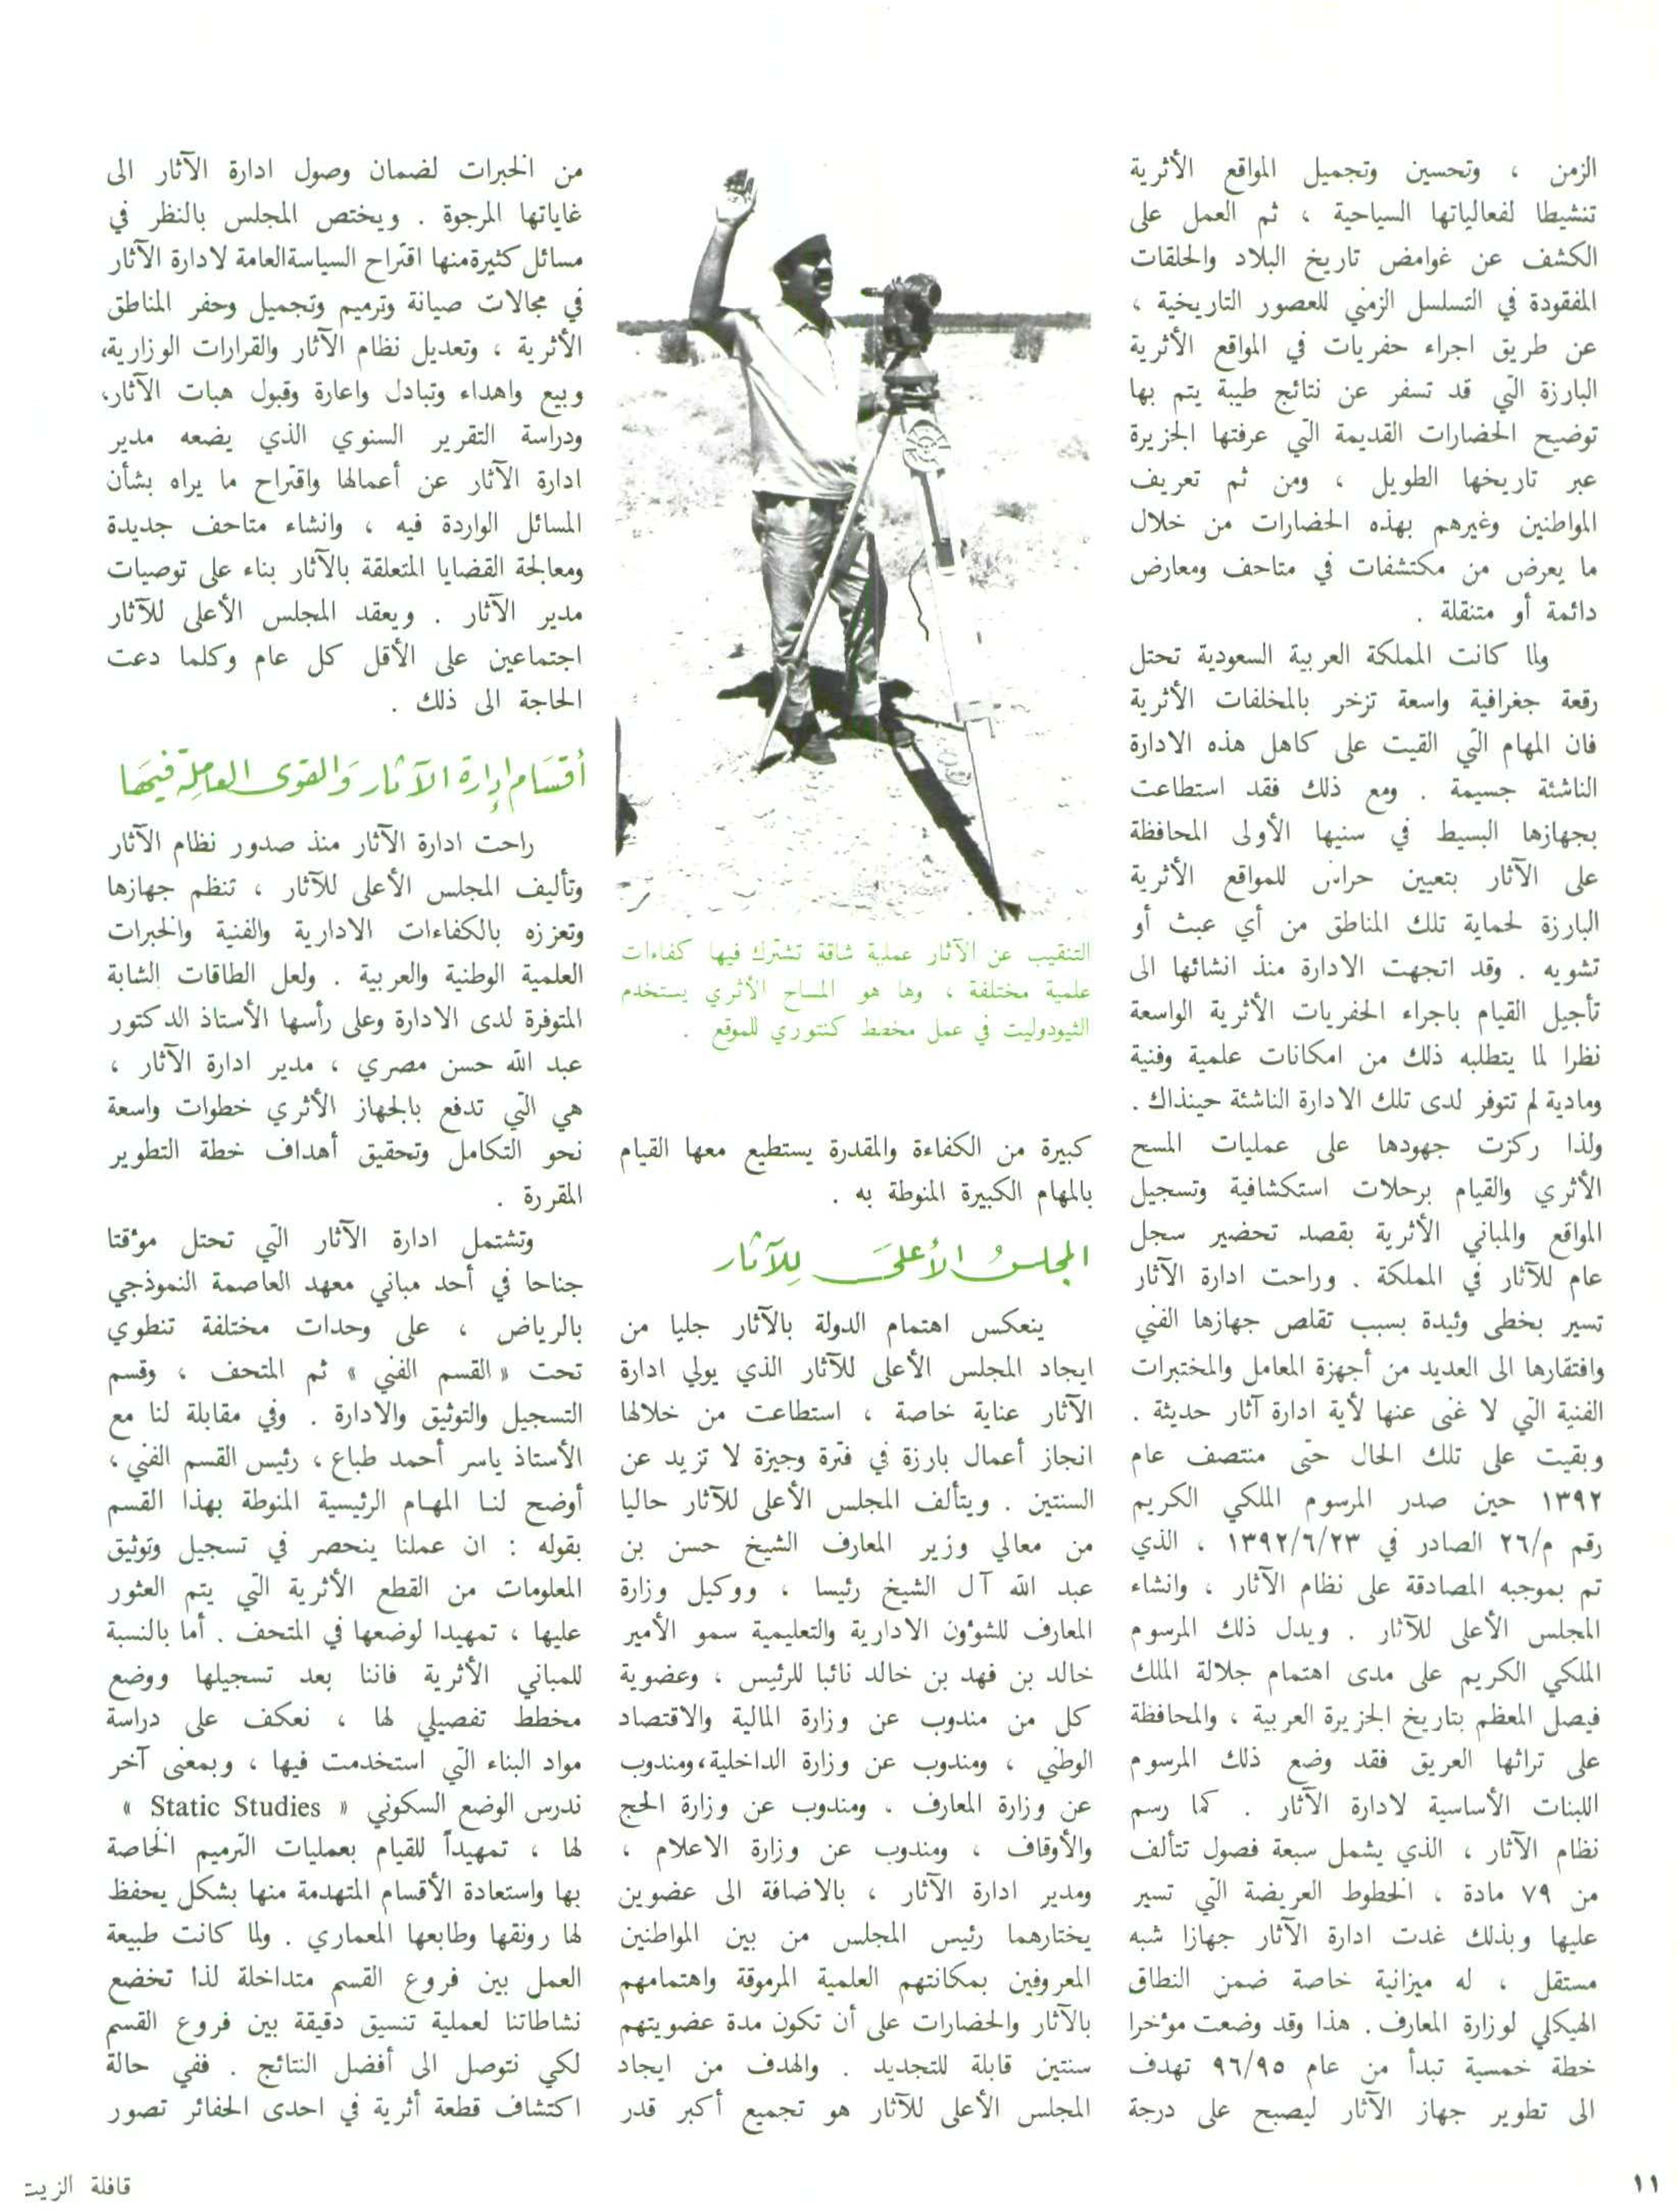 الزمن ، وتحسين وتجميل المواقع الأثرية
تنشيطا لفعالياتها السياحية ، ثم العمل على
الكشف عن غوامض تاريخ البلاد والحلقات
المفقودة في التسلسل الزمني للعصور التاريخية ،
عن طريق اجراء حفريات في المواقع الأثرية
البارزة التي قد تسفر عن نتائج طيبة يتم بها
توضيح الحضارات القديمة التي عرفتها الجزيرة
عبر تاريخها الطويل ، ومن ثم تعريف
المواطنين وغيرهم بهذه الحضارات من خلال
ما يعرض من مكتشفات في متاحف ومعارض
دائمة أو متنقلة .
ولما كانت المملكة العربية السعودية تحتل
رقعة جغرافية واسعة تزخر بالمخلفات الأثرية
فان المهام التي القيت على كاهل هذه الادارة
الناشئة جسيمة . ومع ذلك فقد استطاعت
بجهازها البسيط في سنيها الأولى المحافظة
على الآثار بتعيين حراس للمواقع الأثرية
البارزة لحماية تلك المناطق من أي عبث أو
تشويه . وقد اتجهت الادارة منذ انشائها الى
تأجيل القيام باجراء الحفريات الأثرية الواسعة
نظرا لما يتطلبه ذلك من امكانات علمية وفنية
ومادية لم تتوفر لدى تلك الادارة الناشئة حينذاك .
ولذا ركزت جهودها على عمليات المسح
الأثري والقيام برحلات استكشافية وتسجيل
المواقع والمباني الأثرية بقصد تحضير سجل
عام للآثار في المملكة . وراحت ادارة الآثار
تسير بخطى وئيدة بسبب تقلص جهازها الفني
وافتقارها الى العديد من أجهزة المعامل والمختبرات
الفنية التي لا غنى عنها لأية ادارة آثار حديثة .
وبقيت على تلك الحال حتى منتصف عام
١٣٩٢ حين صدر المرسوم الملكي الكريم
رقم م/٢٦ الصادر في ١٣٩٢/٦/٢٣ ، الذي
تم بموجبه المصادقة على نظام الآثار ، وانشاء
المجلس الأعلى للآثار . ويدل ذلك المرسوم
الملكي الكريم على مدى اهتمام جلالة الملك
فيصل المعظم بتاريخ الجزيرة العربية ، والمحافظة
على تراثها العريق فقد وضع ذلك المرسوم
اللبنات الأساسية لادارة الآثار . كما رسم
نظام الآثار ، الذي يشمل سبعة فصول تتألف
من ٧٩ مادة ، الخطوط العريضة التي تسير
عليها وبذلك غدت ادارة الآثار جهازا شبه
مستقل ، له ميزانية خاصة ضمن النطاق
الهيكلي لوزارة المعارف . هذا وقد وضعت مؤخرا
خطة خمسية تبدأ من عام ٩٦/٩٥ تهدف
الى تطوير جهاز الآثار ليصبح على درجة
التنقيب عن الآثار عملية شاقة تشترك فيها كفاءات
علمية مختلفة ، وها هو المساح الأثري يستخدم
الثيودوليت في عمل مخطط كنتوري للموقع .
كبيرة من الكفاءة والمقدرة يستطيع معها القيام
بالمهام الكبيرة المنوطة به .
المجلسُ الأعلىَ لِلآثار
ينعكس اهتمام الدولة بالآثار جليا من
ايجاد المجلس الأعلى للآثار الذي يولي ادارة
الآثار عناية خاصة ، استطاعت من خلالها
انجاز أعمال بارزة في فترة وجيزة لا تزيد عن
السنتين . ويتألف المجلس الأعلى للآثار حاليا
من معالي وزير المعارف الشيخ حسن بن
عبد الله آل الشيخ رئيسا ، ووكيل وزارة
المعارف للشؤون الادارية والتعليمية سمو الأمير
خالد بن فهد بن خالد نائبا للرئيس ، وعضوية
كل من مندوب عن وزارة المالية والاقتصاد
الوطني ، ومندوب عن وزارة الداخلية،ومندوب
عن وزارة المعارف . ومندوب عن وزارة الحج
والأوقاف ، ومندوب عن وزارة الاعلام ،
ومدير ادارة الآثار ، بالاضافة الى عضوين
يختارهما رئيس المجلس من بين المواطنين
المعروفين بمكانتهم العلمية المرموقة واهتمامهم
بالآثار والحضارات على أن تكون مدة عضويتهم
سنتين قابلة للتجديد . والهدف من ايجاد
المجلس الأعلى للآثار هو تجميع أكبر قدر
من الخبرات لضمان وصول ادارة الآثار الى
غاياتها المرجوة . ويختص المجلس بالنظر في
مسائل كثيرةمنها اقتراح السياسةالعامة لادارة الآثار
في مجالات صيانة وترميم وتجميل وحفر المناطق
الأثرية ، وتعديل نظام الآثار والقرارات الوزارية،
وبيع واهداء وتبادل واعارة وقبول هبات الآثار،
ودراسة التقرير السنوي الذي يضعه مدير
ادارة الآثار عن أعمالها واقتراح ما يراه بشأن
المسائل الواردة فيه ، وانشاء متاحف جديدة
ومعالجة القضايا المتعلقة بالآثار بناء على توصيات
مدير الآثار . ويعقد المجلس الأعلى للآثار
اجتماعين على الأقل كل عام وكلما دعت
الحاجة الى ذلك .
أقسَام إدارة الآثار وَالقوى العامِلة فيهَا
راحت ادارة الآثار منذ صدور نظام الآثار
وتأليف المجلس الأعلى للآثار ، تنظم جهازها
وتعززه بالكفاءات الادارية والفنية والخبرات
العلمية الوطنية والعربية . ولعل الطاقات الشابة
المتوفرة لدى الادارة وعلى رأسها الأستاذ الدكتور
عبد الله حسن مصري ، مدير ادارة الآثار ،
هي التي تدفع بالجهاز الأثري خطوات واسعة
نحو التكامل وتحقيق أهداف خطة التطوير
المقررة .
وتشتمل ادارة الآثار التي تحتل موءقتا
جناحا في أحد مباني معهد العاصمة النموذجي
بالرياض ، على وحدات مختلفة تنطوي
تحت « القسم الفني » ثم المتحف ، وقسم
التسجيل والتوثيق والادارة . وفي مقابلة لنا مع
الأستاذ ياسر أحمد طباع ، رئيس القسم الفني ،
أوضح لنا المهام الرئيسية المنوطة بهذا القسم
بقوله : ان عملنا ينحصر في تسجيل وتوثيق
المعلومات من القطع الأثرية التي يتم العثور
عليها ، تمهيدا لوضعها في المتحف . أما بالنسبة
للمباني الأثرية فاننا بعد تسجيلها ووضع
مخطط تفصيلي لها ، نعكف على دراسة
مواد البناء التي استخدمت فيها ، وبمعنى آخر
ندرس الوضع السكوني « Static Studies »
لها ، تمهيداً للقيام بعمليات الترميم الخاصة
بها واستعادة الأقسام المتهدمة منها بشكل يحفظ
لها رونقها وطابعها المعماري . ولما كانت طبيعة
العمل بين فروع القسم متداخلة لذا تخضع
نشاطاتنا لعملية تنسيق دقيقة بين فروع القسم
لكي نتوصل الى أفضل النتائج . ففي حالة
اكتشاف قطعة أثرية في احدى الحفائر تصور
١١
قافلة الزيت